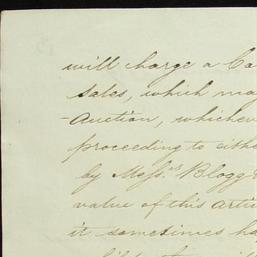 will charge a
sales, which may
Auction, whichever
proceeding to
by Mess.rs Blogg
value of this
it sometimes